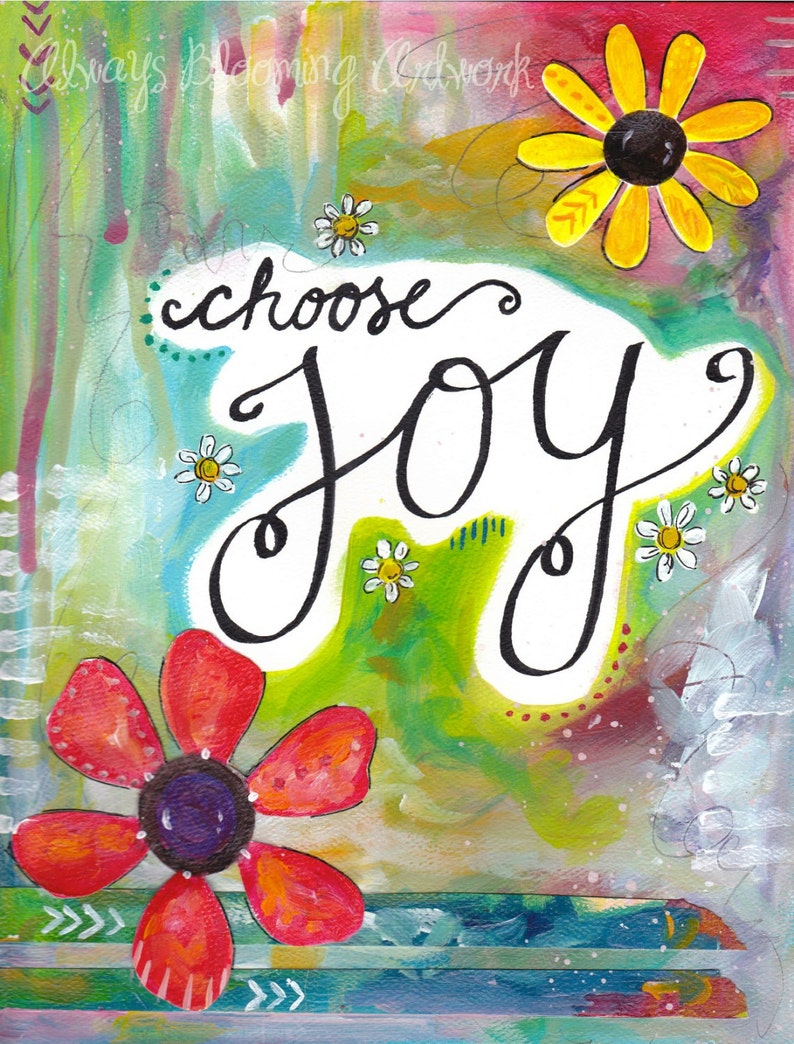 Always Blooming Artwork
choose
Joy